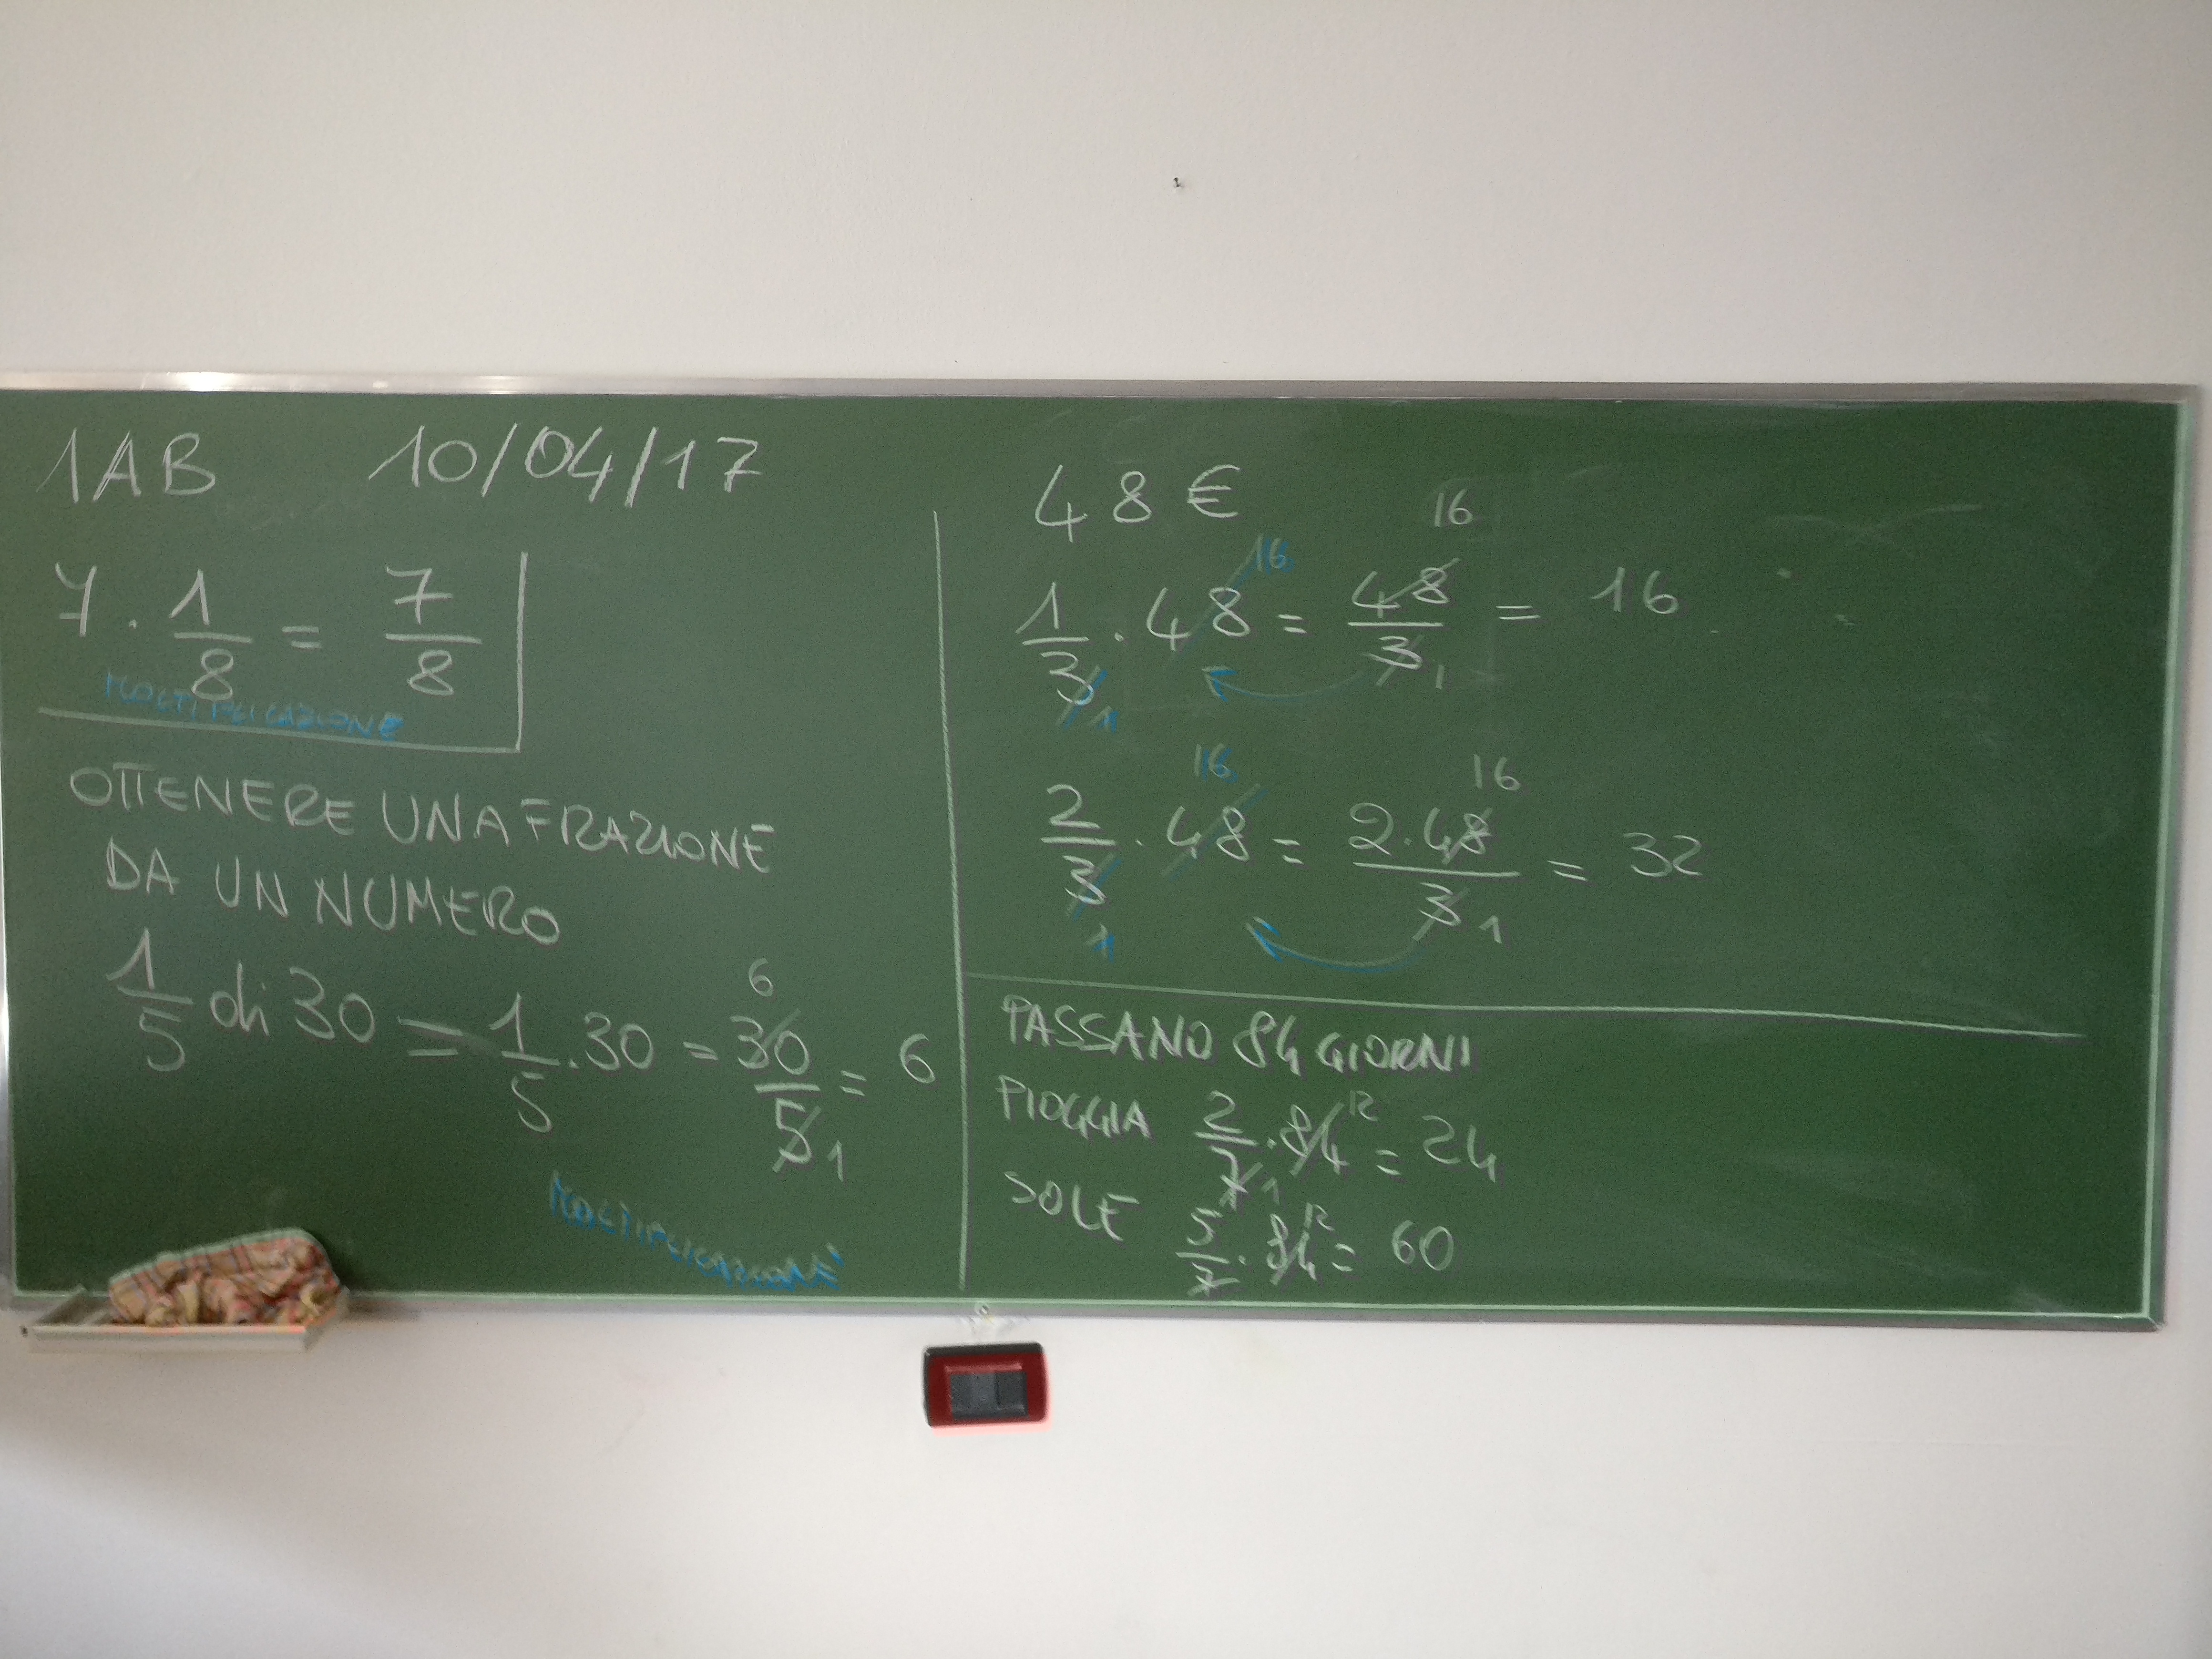 1AB 10/04/17
7 · 1/8 = 7/8
MOLTIPLICAZIONE
OTTENERE UNA FRAZIONE
DA UN NUMERO
1/5 di 30 = 1/5 · 30 = 30/5 = 6
6
1
MOLTIPLICAZIONE
48 €
16 16
1/3 · 48 = 48/3 = 16
1 1
16 16
2/3 · 48 = 2·48/3 = 32
1 1
PASSANO 84 GIORNI
PIOGGIA 2/7 · 84 = 24
12
1
SOLE 5/7 · 84 = 60
12